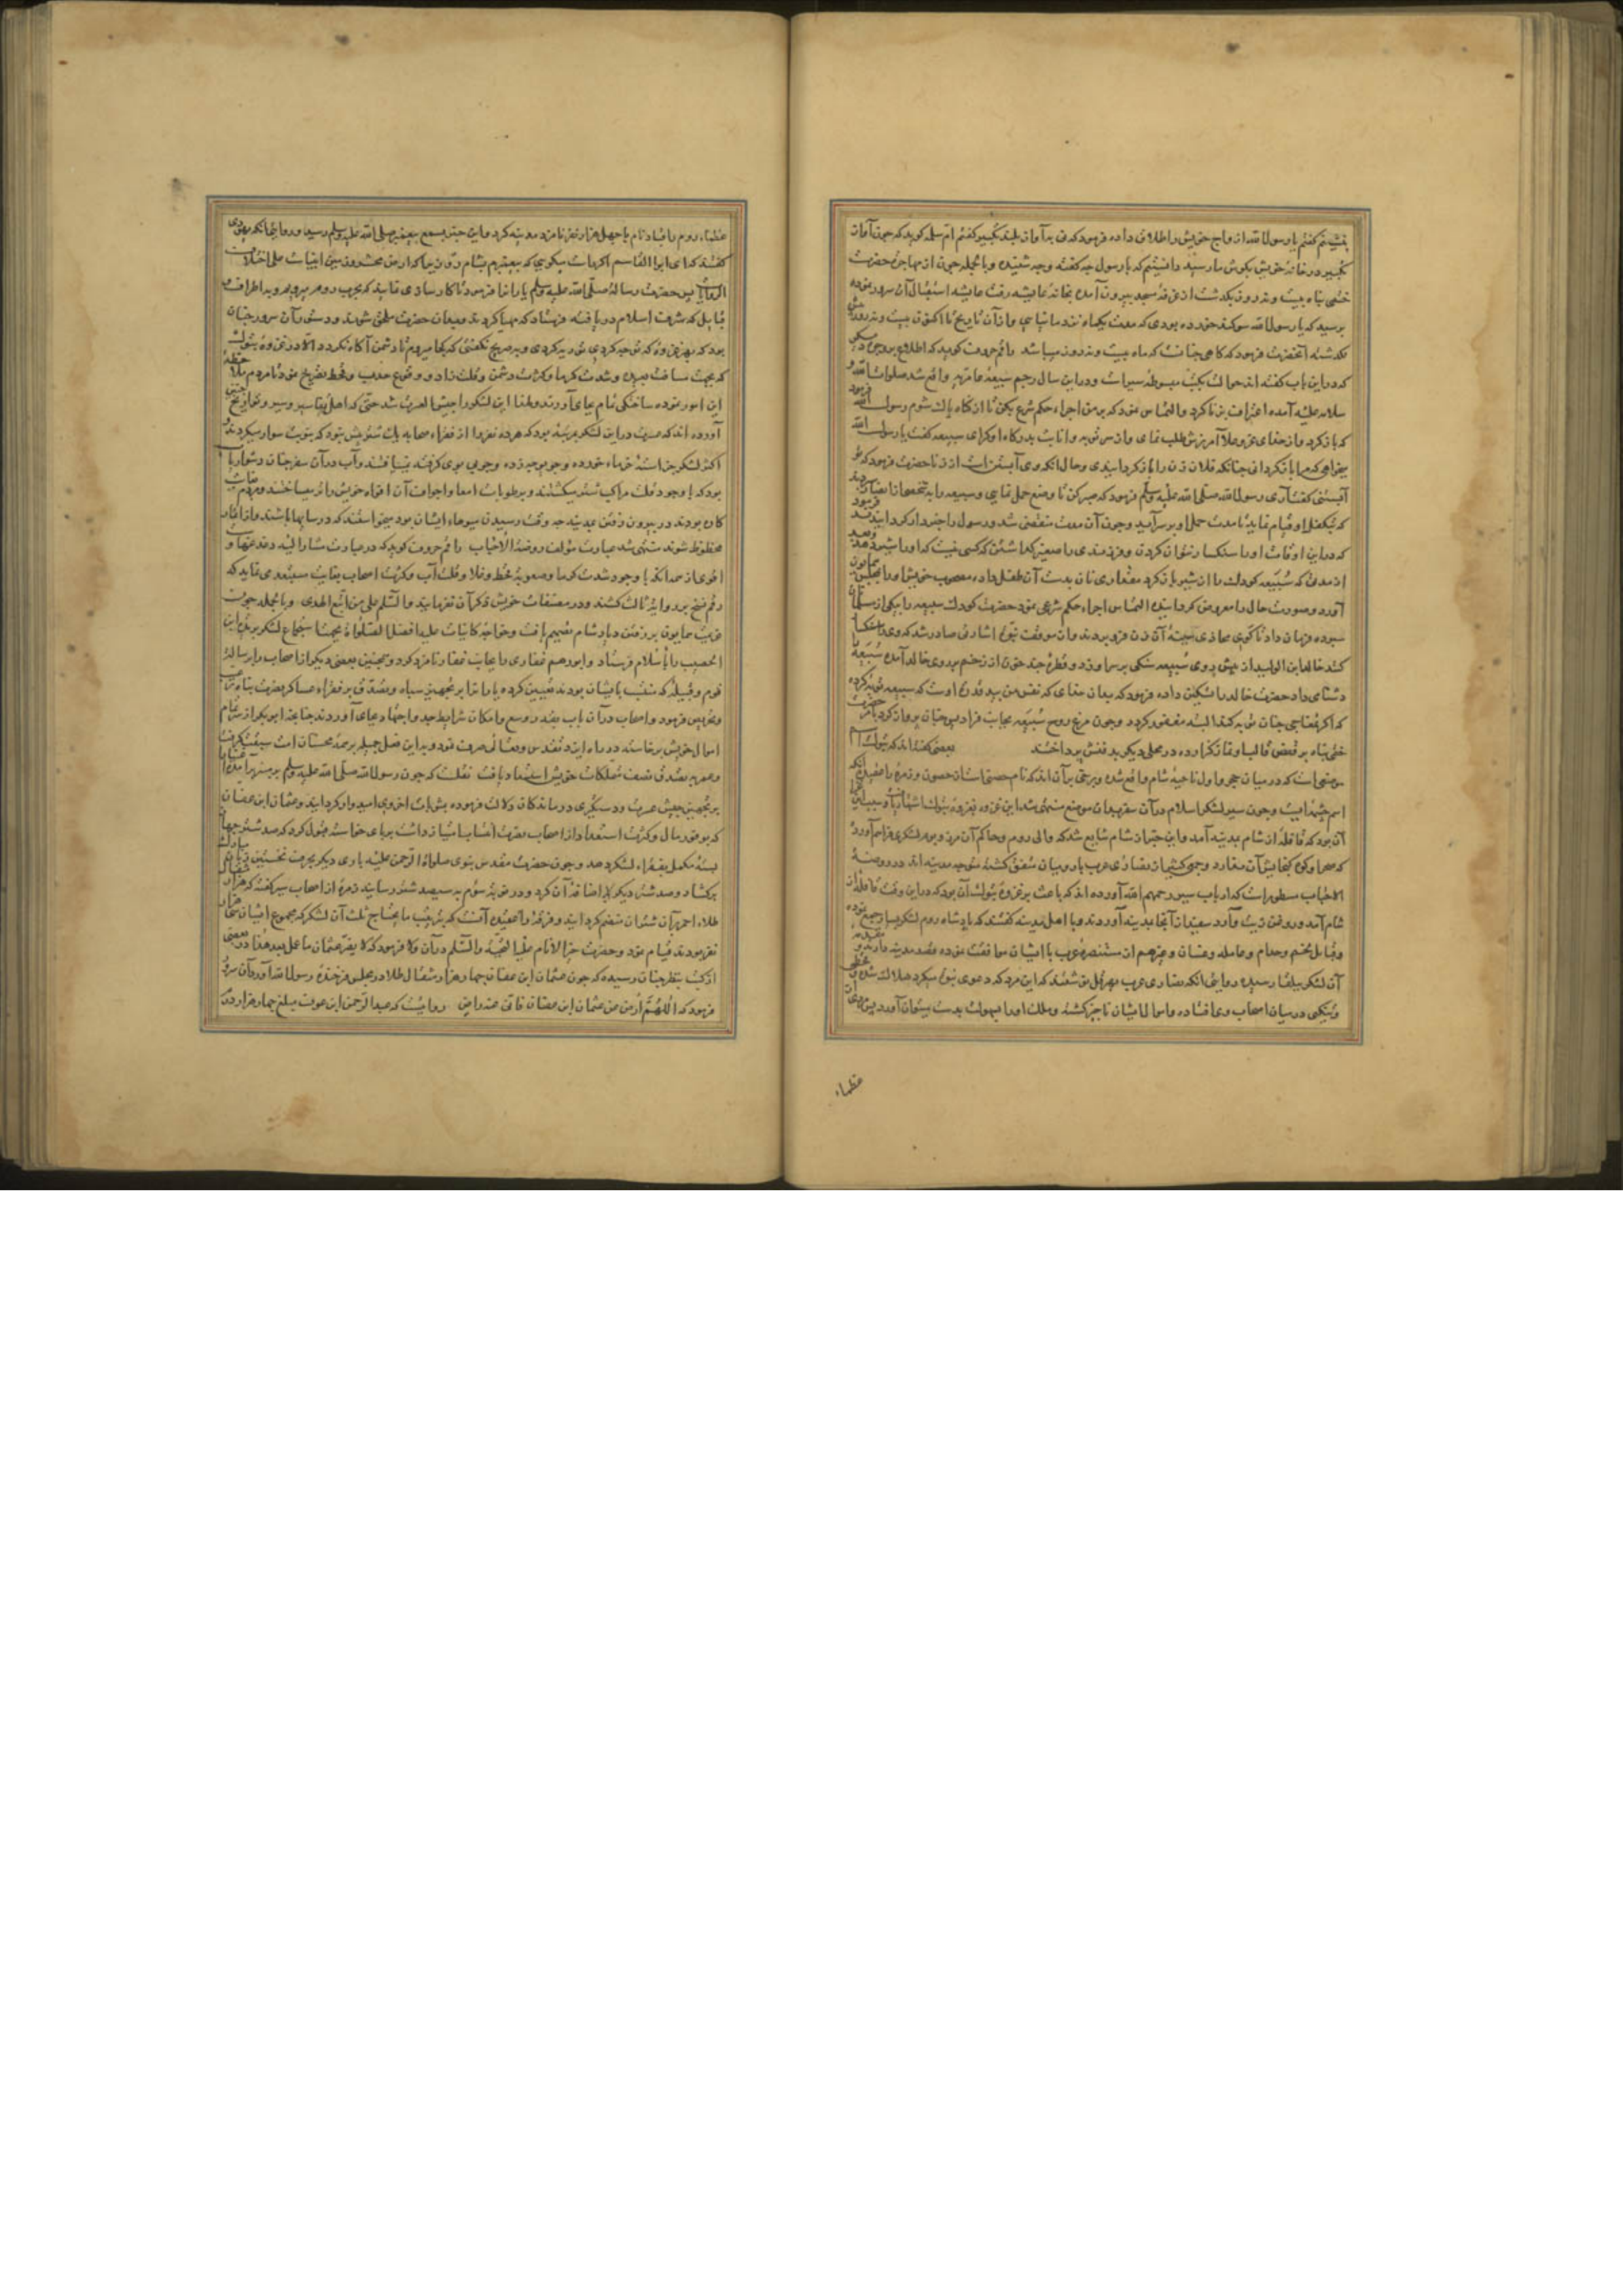 بنشینم گفتم یا رسول الله ازواج خویش را طلاق داده فرمود که نی به آواز بلند تکبیر گفتم ام سلمه گوید که چون آواز
تکبیر در خانه خویش بگوش ما رسید دانستیم که با رسول چه گفته و چه شنیده و بالجمله چون از مهاجرة حضرت
ختمی پناه بیست و نه روز بگذشت از غرفه مسجد بیرون آمده بخانه عایشه رفت عایشه استقبال آن سرور نموده
پرسید که یا رسول الله سوکند خورده بودی که مدت یکماه نزد ما نیایی و از آن تاریخ تا اکنون بیست و نه روز
گذشته آنحضرت فرمود که گاهی چنانست که ماه بیست و نه روز میباشد راقم حروف گوید که اطلاع بر وجوه دیگر
که درین باب گفته اند حوالت بکتب مبسوطه سیر است و درین سال رجم سبیعه غامدیه واقع شد صلوات الله و
سلامه علیه آمده اعتراف بزنا کرد و التماس نمود که بر من اجراء حکم شرع بکن تا از گناه پاک شوم رسول الله فرمود
که باز گرد و از خدای عز و علا آمرزش طلب نمای و از سر توبه و انابت بدرگاه او گرای سبیعه گفت یا رسول الله
میخواهی که مرا باز گردانی چنانکه فلان زن را باز گردانیدی و حال آنکه وی آبستن است از زنا حضرت فرمود که تو
آبستنی گفت آری رسول الله صلی الله علیه وسلم فرمود که صبر کن تا وضع حمل نمایی و سبیعه را به شخصی از انصار
که بتکفل او قیام نماید تا مدت حمل او بسر آید و چون آن مدت منقضی شد و رسول را خبردار گردانیدند فرمود
که درین اوقات او را سنگسار نتوان کردن و فرزندی را صغیر گذاشتن که کسی نیست که او را شیر دهد
از مدتی که سبیعه کودک را از شیر باز کرد مقداری نان بدست آن طفل داده مصحوب خویش او را بمجلس همایون
آورد و صورت حال را معروض گردانیده التماس اجراء حکم شرعی نمود حضرت کودک سبیعه را بیکی از مسلمانان
سپرده فرمان داد تا گوی محاذی سینه آن زن فرو بردند و از موقف نبوة اشارتی صادر شد که وی را سنگسار
کنند خالد ابن الولید از پیش روی سبیعه سنگی بر سر او زد و قطره چند خون از زخم بر روی خالد آمده سبیعه را
دشنام داد حضرت خالد را تسکین داده فرمود که بدان خدای که نفس من بید قدرة اوست که سبیعه توبه کرده
که اگر عشاری چنان توبه کند البته مغفور گردد و چون مرغ روح سبیعه بجانب فرادیس جنان پرواز کرد بامر حضرت
ختمی پناه بر قبض قالب او نماز گزارده در محلی دیگر بدفنش پرداختند بعضی گفته اند که تبوک نام
موضعی است که در میان حجر و اول ناحیه شام واقع شده و برخی بر آن اند که نام حصنی است از حصون و زمره را عقیده آنکه
اسم چشمه ایست و چون سیر لشکر اسلام در آن سفر بدان موضع منتهی شد این غزوه بغزوة تبوک اشتهار یافت و سبب این غزا
آن بود که قافله از شام بمدینه آمد و این خبر از شام شایع شد که والی روم و حاکم آن مرز و بوم لشکری فراهم آورده
که صحرا و کوه گنجایش آن ندارد و جمعی کثیر از نصاری عرب با رومیان متفق گشته متوجه مدینه اند در روضة
الاحباب مسطور است که ارباب سیر رحمهم الله آورده اند که باعث بر غزوة تبوک آن بود که درین وقت قافله از
شام آمد و روغن زیت و آرد سفید از آنجا بمدینه آوردند و با اهل مدینه گفتند که پادشاه روم لشکر بسیار جمع نموده
و قبایل لخم و جذام و عامله و غسان و غیرهم از متنصره عرب با ایشان موافقت نموده قصد مدینه دارند و مقدمه
آن لشکر ببلقا رسیده روایتی آنکه نصاری عرب بهرقل نوشتند که این مرد که دعوی نبوة میکرد هلاک شده و قحطی
و تنگی در میان اصحاب وی افتاده و اموال ایشان ناچیز گشته و ملک او را بسهولت بدست میتوان آورد پس مردی از
عظماء
عظماء روم را قباد نام با چهل هزار نفر نامزد مدینه کرد و این خبر بسمع پیغمبر صلی الله علیه وسلم رسید و روایتی آنکه یهودی
گفتند که ای ابوالقاسم اگر راست میگویی که پیغمبرم بشام رو زیرا که ارض محشر و زمین انبیاست علی اختلاف
الروایات پس حضرت رسالة صلی الله علیه وسلم یارانرا فرمود تا کارسازی نمایند که بحرب روم میرویم و به اطراف
قبایل که شرف اسلام دریافته فرستاد که مهیا گردند و بدان حضرت ملحق شوند و دستور آن سرور چنان
بود که بهر غزوه که توجه کردی توریه کردی و بصریح نگفتی که کجا میرویم تا دشمن آگاه نگردد الا در غزوة تبوک
که بجهت مسافت بعیده و شدت گرما و کثرت دشمن و قلت زاد و وقوع جدب و قحط تصریح نمود تا مردم ملاحظه
این امور نموده ساختگی تمام بجای آورند و لهذا این لشکر را جیش العسرة شد حتی که اهل تفاسیر و سیر و تواریخ چنین
آورده اند که عسرت درین لشکر بمرتبه بود که هرده نفر را از فقراء صحابه یک شتر بیش نبود که بنوبت سوار میگردند و
اکثر لشکریان استه خرماء خورده و جو موجه زده و چربی بوی گرفته نمییافتند و آب در آن سفر چنان دشوار یاب
بود که با وجود قلت مراکب شتر میکشتند و برطوبات امعا و اجواف آن افواه خویش را تر میساختند و مردم
کاره بودند در بیرون رفتن بمدینه چه وقت رسیدن میوهاء ایشان بود میخواستند که در سایها باشند و از اثمار
محظوظ شوند منتهی شد عبارت مؤلف روضة الاحباب راقم حروف گوید که در عبارت مشار الیه دغدغها و
اقوی از همه آنکه با وجود شدت گرما و صعوبة قحط و غلا و قلت آب و کثرت اصحاب بغایت مستبعد می نماید که
رقم نسخ بر روایة ثالث کشند و در مصنفات خویش ذکر آن نفرمایند والسلم علی من اتبع الهدی و بالجمله چون
عزیمت همایون بر رفتن دیار شام تصمیم یافت و خواجه کاینات علیه افضل الصلواة بجهت اجتماع لشکر بریدة ابن
الحصیب را باسلام فرستاد و ابورهم غفاری را بجانب غفار نامزد کرد و همچنین بعضی دیگر از اصحاب را رساله
قوم و قبیله که منتسب بایشان بودند تعیین کرده یارانرا بر تجهیز سپاه و تصدق بر فقراء عساکر نصرت پناه ترغیب
و تحریص فرمود و اصحاب در آن باب بقدر وسع و امکان شرایط جد و اجتهاد بجای آوردند چنانچه ابوبکر از سر تمام
اموال خویش برخاسته در راه ایزد تقدس و تعالی صرف نمود و بدین فضل جمیل بر همه محسنان امت سبقت گرفت
و عمر به تصدق نصف تملکات خویش استسعاد یافت نقلست که چون رسول الله صلی الله علیه وسلم بر منبر برآمده
بر تجهیز جیش عسرت و دستگیری درماندگان دلالت فرموده بمثوبات اخروی امیدوار گردانید و عثمان ابن عفان
که بوفور مال و کثرت استعداد از اصحاب نصرت انتساب امتیاز داشت بر پای خواسته قبول کرد که صد شتر جهاز
بسته مکمل بفقراء لشکر دهد و چون حضرت مقدس نبوی صلواة الرحمن علیه باری دیگر بجهت تحسین زبان مبارک
برگشاد و صد شتر دیگر را اضافه آن کرد و در نوبة سوم به سیصد شتر رسانید زمره از اصحاب سیر گفته که هزار مثقال
طلاء احمر بر آن شتران منضم گردانید و فرقه را عقیده آنست که بترتیب ما یحتاج ثلث آن لشکر که مجموع ایشان سی هزار
نفر بودند قیام نمود و حضرت خیر الانام علیه التحیة والسلم در آن ولا فرمود که لا یضر عثمان ما عمل بعد هذا در بعضی
از کتب بنظر چنان رسیده که چون عثمان ابن عفان چهار هزار مثقال طلا در مجلس فرخنده رسول الله آورد آن سرور
فرمود که اللهم ارض عن عثمان ابن عفان فانی عنه راض روایتست که عبدالرحمن ابن عوف مبلغ چهار هزار درم